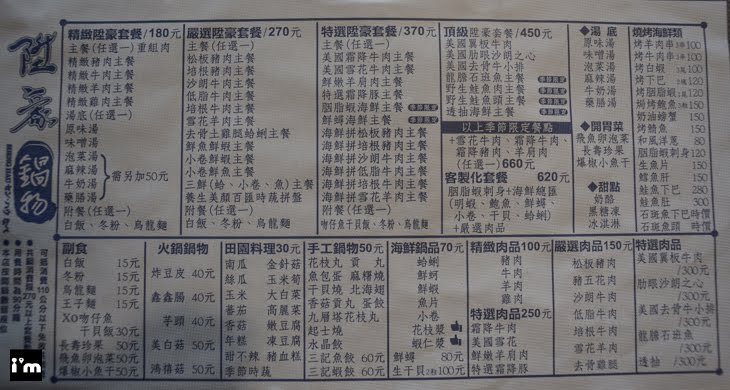 陞豪
鍋物
精緻陞豪套餐/180元
主餐(任選一)重組肉
精緻豬肉主餐
精緻牛肉主餐
精緻羊肉主餐
精緻雞肉主餐
湯底(任選一)
原味湯
味噌湯
泡菜湯
麻辣湯
牛奶湯
藥膳湯
需另加50元
附餐(任選一)
白飯、冬粉、烏龍麵
嚴選陞豪套餐/270元
主餐(任選一)
松板豬肉主餐
培根豬肉主餐
沙朗牛肉主餐
低脂牛肉主餐
培根牛肉主餐
雪花羊肉主餐
去骨土雞腿蛤蜊主餐
鮮魚鮮蝦主餐
小卷鮮蝦主餐
小卷鮮魚主餐
三鮮(蛤、小卷、魚)主餐
養生美顏百匯時蔬拼盤
附餐(任選一)
白飯、冬粉、烏龍麵
特選陞豪套餐/370元
主餐(任選一)
美國霜降牛肉主餐
美國雪花牛肉主餐
鮮嫩羊肩肉主餐
特選霜降豚主餐
胭脂蝦海鮮主餐
海鮮鱘海鮮主餐
海鮮拼松板豬肉主餐
海鮮拼培根豬肉主餐
海鮮拼沙朗牛肉主餐
海鮮拼低脂牛肉主餐
海鮮拼培根牛肉主餐
海鮮拼雪花羊肉主餐
附餐(任選一)
吻仔魚干貝飯、冬粉、烏龍麵
頂級陞豪套餐/450元
美國翼板牛肉
美國肋眼沙朗之心
美國去骨牛小排
龍膽石斑魚主餐
野生鮭魚肉主餐
野生鮭魚頭主餐
透抽海鮮主餐
以上季節限定餐點
+雪花牛肉、霜降牛肉、
霜降豬肉、羊肩肉
(任選一)660元
客製化套餐 620元
胭脂蝦刺身+海鮮總匯
(明蝦、鮑魚、鮮蚵、
小卷、干貝、蛤蜊)
+嚴選肉品
◆湯 底
原味湯
味噌湯
泡菜湯
麻辣湯
牛奶湯
藥膳湯
◆開胃菜
飛魚卵泡菜
長壽珍果
爆椒小魚干
◆甜點
奶酪
黑糖凍
冰淇淋
燒烤海鮮類
烤羊肉串 100
烤牛肉串 100
烤白蝦 100
烤下巴 120
烤胭脂蝦 120
焗烤鮑魚 100
奶油螃蟹 150
烤鯖魚 150
和風洋蔥 80
胭脂蝦刺身 120
生魚片 150
鱈魚肝 150
鮭魚下巴 280
鮭魚頭 300
石斑魚下巴時價
石斑魚頭 時價
副食
白飯 15元
冬粉 15元
烏龍麵 15元
王子麵 15元
XO吻仔魚
干貝飯30元
長壽珍果 50元
飛魚卵泡菜50元
爆椒小魚干50元
火鍋鍋物
炸豆皮 40元
鑫鑫腸 40元
芋頭 40元
美白菇 50元
鴻禧菇 50元
田園料理30元
南瓜 金針菇
絲瓜 玉米筍
玉米 大白菜
蕃茄 高麗菜
香菇 嫩豆腐
年糕 凍豆腐
甜不辣 豬血糕
季節時蔬
手工鍋物50元
花枝丸 貢丸
魚包蛋 麻糬燒
干貝燒 北海翅
香菇貢丸 蛋餃
九層塔花枝丸
起士燒
水晶餃
三記魚餃 60元
三記蝦餃 60元
海鮮鍋品70元
蛤蜊
鮮蚵
鮮蝦
魚片
小卷
花枝漿
蝦仁漿
鮮鱘 80元
生干貝2粒100元
精緻肉品100元
豬肉
牛肉
羊肉
雞肉
特選肉品250元
霜降牛肉
雪花牛肉
鮮嫩羊肩肉
特選霜降豚
嚴選肉品150元
松板豬肉
豬五花肉
沙朗牛肉
低脂牛肉
培根牛肉
雪花羊肉
去骨雞腿
特選肉品
美國翼板牛肉
/300元
肋眼沙朗之心
/300元
美國去骨牛小排
/300元
龍膽石斑魚
/300元
透抽 /300元
i'm